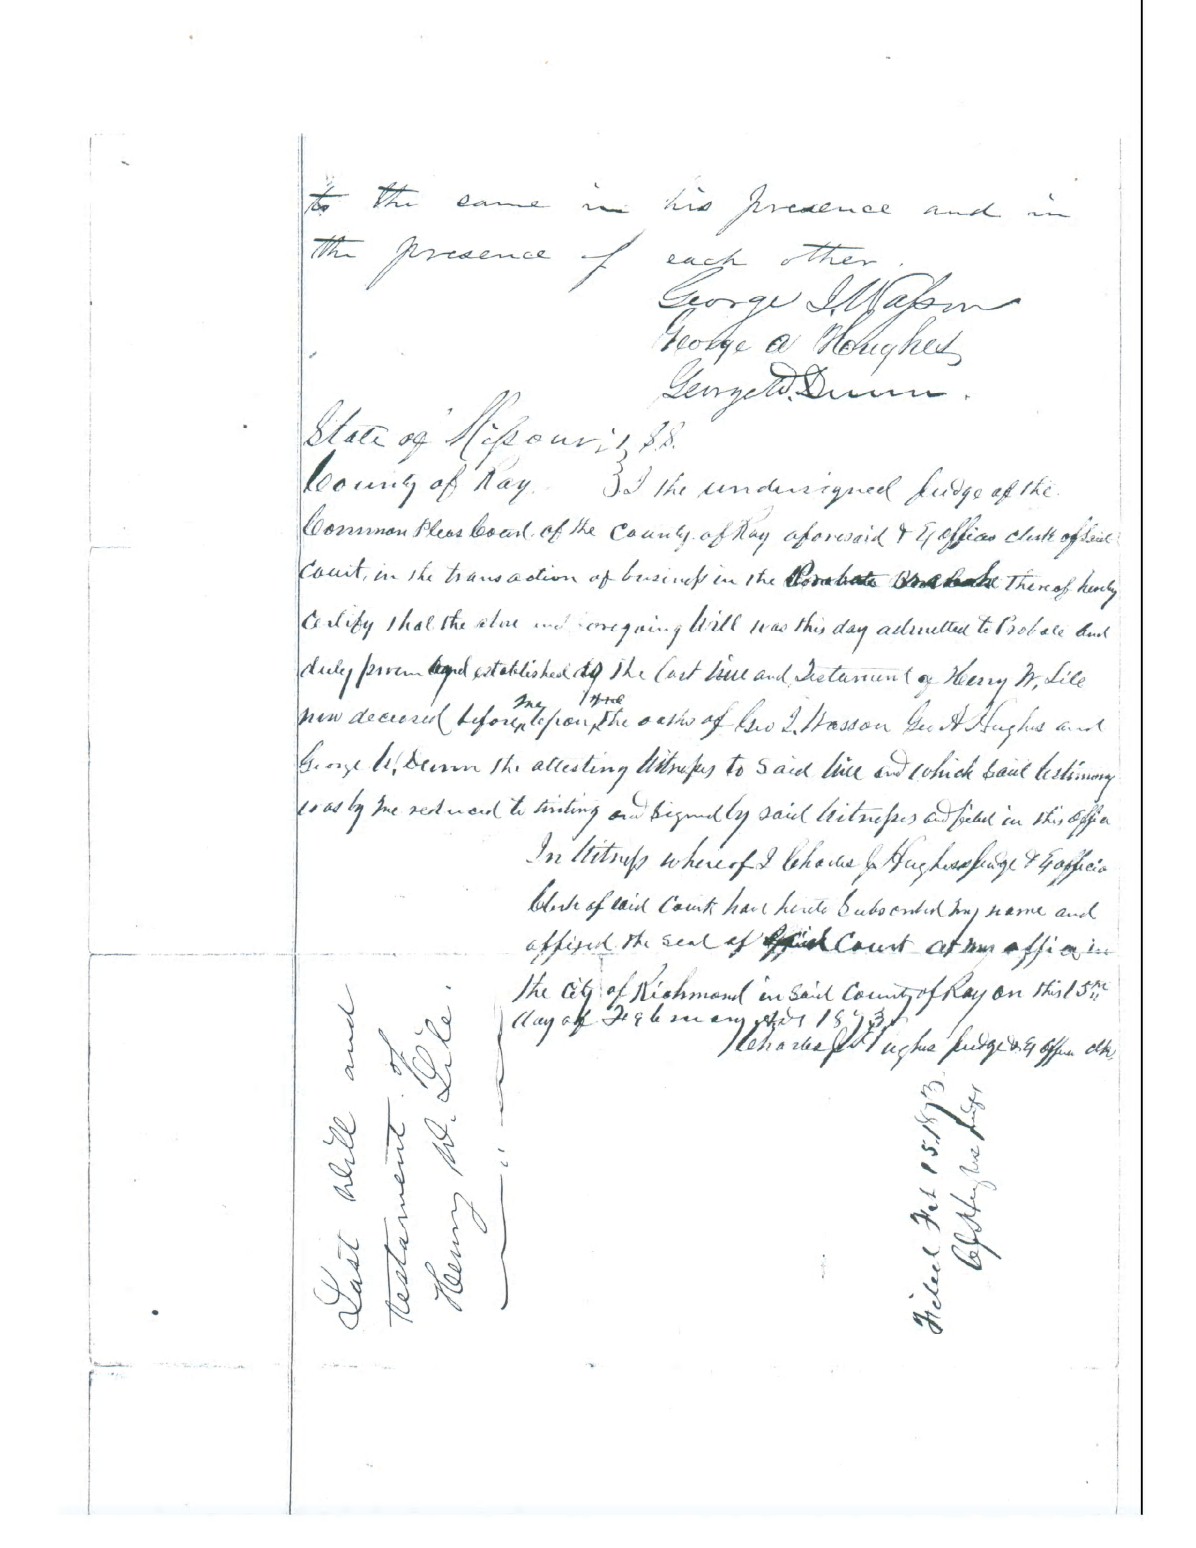 to the same in his presence and in
the presence of each other.
George I. Wasson
George A Houghes
George W. Dunn.
State of Missouri } S.S.
County of Ray } I the undersigned Judge of the
Common Pleas Court of the County of Ray aforesaid & Ex officio clerk of said
Court, in the transaction of business in the thereof hereby
certify that the above and foregoing Will was this day admitted to Probate and
duly proven and established as the last Will and Testament of Henry W. Lile
now deceased before me upon the oaths of Geo I. Wasson Geo A Hughes and
George W. Dunn the attesting Witnesses to said Will and which said testimony
was by me reduced to writing and signed by said Witnesses and filed in this office
In Witness whereof I Charles J Hughes Judge & Ex officio
Clerk of said Court have hereto subscribed my name and
affixed the seal of said Court at my office in
the City of Richmond in said County of Ray on this 15th
day of February AD 1873
Charles J Hughes Judge & Ex officio clk.
Last Will and
Testament of
Henry W. Lile.
Filed Feb 15. 1873
CJ Hughes Judge